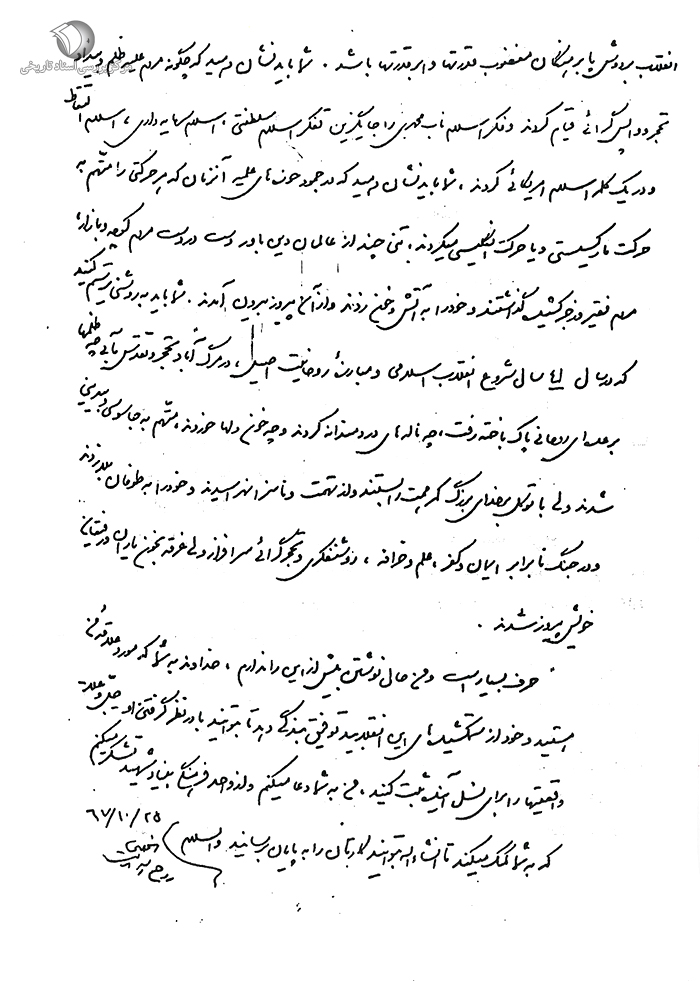 مرکز بررسی اسناد تاریخی
انقلاب بر دوش پابرهنگان مغضوب قدرتها و ابرقدرتها باشد. شما باید نشان دهید که چگونه مردم علیه ظلم و بیداد
تحجر و واپس گرائی قیام کردند و فکر اسلام ناب محمدی را جایگزین تفکر اسلام سلطنتی، اسلام سرمایه داری، اسلام التقاط
و در یک کلمه اسلام امریکائی کردند، شما باید نشان دهید که در جمود حوزه های علمیه آنزمان که هر حرکتی را متهم به
حرکت مارکسیستی و یا حرکت انگلیسی میکردند، تنی چند از عالمان دین باور دست در دست مردم کوچه و بازار،
مردم فقیر و زجر کشیده گذاشتند و خود را به آتش و خون زدند و از آن پیروز بیرون آمدند. شما باید به روشنی ترسیم کنید
که در سال ۴۱ سال شروع انقلاب اسلامی و مبارزهٔ روحانیت اصیل، در مرگ آباد تحجر و تقدس مآبی چه ظلمها
بر عده ای روحانی پاک باخته رفت، چه ناله های دردمندانه کردند و چه خون دلها خوردند، متهم به جاسوسی و بیدینی
شدند ولی با توکل بر خدای بزرگ کمر همت را بستند و از تهمت و ناسزا نهراسیدند و خود را به طوفان بلا زدند
و در جنگ نابرابر ایمان و کفر، علم و خرافه، روشنفکری و تحجر گرائی سرافراز ولی غرقه بخون یاران و رفیقان
خویش پیروز شدند.
حرف بسیار است و من حال نوشتن بیش از این را ندارم، خداوند به شما که مورد علاقهٔ من
هستید و خود از ستمکشیده های این انقلابید توفیق بندگی دهد تا بتوانید با در نظر گرفتن او حب و علاقه
واقعیتها را برای نسل آینده ثبت کنید، من به شما دعا میکنم و از واحد فرهنگی بنیاد شهید تشکر میکنم
که به شما کمک میکند تا انشاءالله بتوانید کارتان را به پایان برسانید والسلام
۶۷/۱۰/۲۵
روح الله الموسوی الخمینی